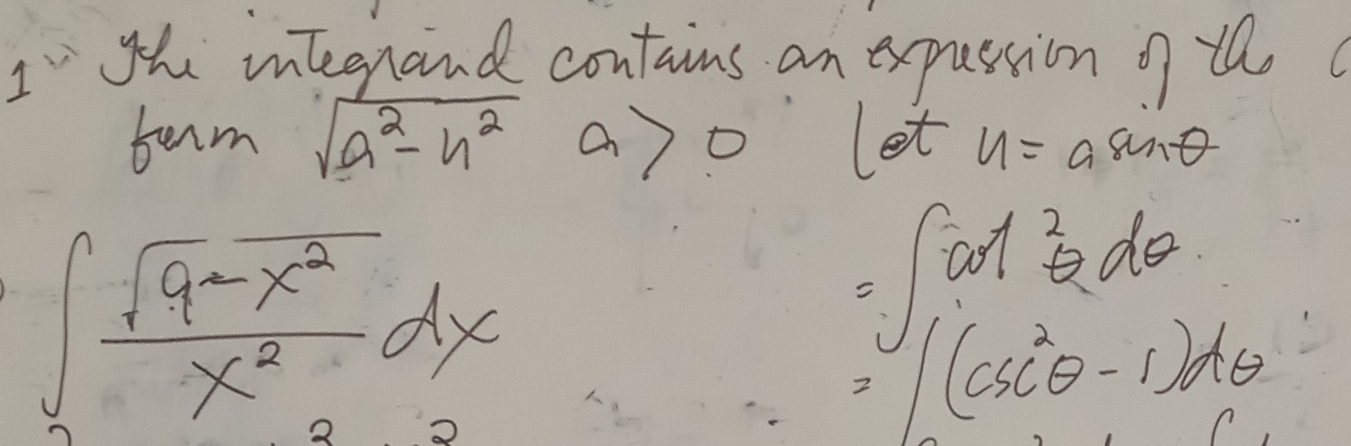 1. The integrand contains an expression of the
form √(a² - u²) a > 0 let u = a sinθ
∫ √(9 - x²) / x² dx
= ∫ cot² θ dθ
= ∫ (csc² θ - 1) dθ